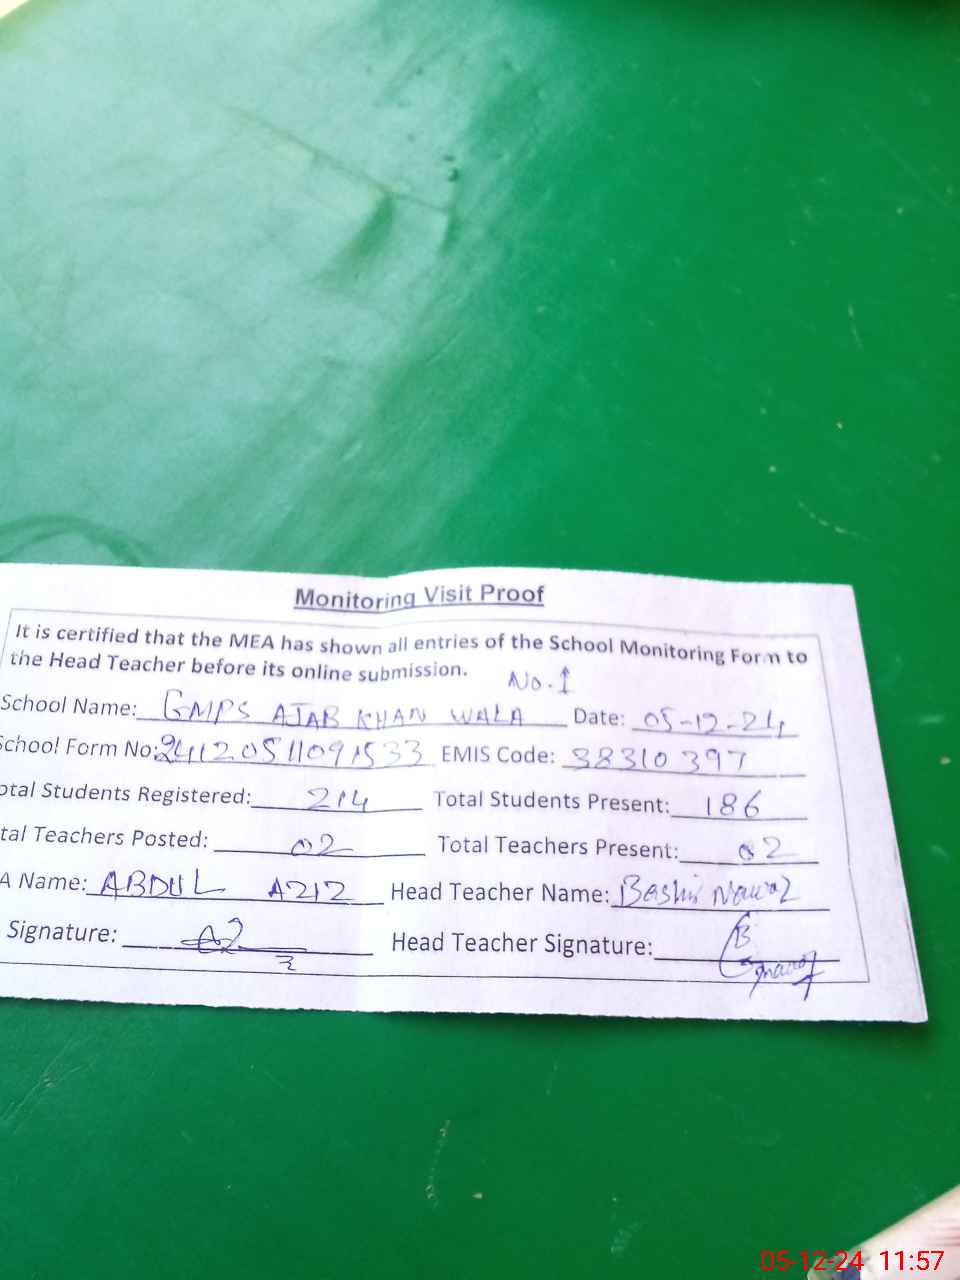 Monitoring Visit Proof
It is certified that the MEA has shown all entries of the School Monitoring Form to
the Head Teacher before its online submission.
No. 1
School Name: GMPS AJAB KHAN WALA Date: 05-12-24
School Form No: 24120511091533 EMIS Code: 38310397
otal Students Registered: 214 Total Students Present: 186
tal Teachers Posted: 02 Total Teachers Present: 02
A Name: ABDUL AZIZ Head Teacher Name: Bashir Nawaz
Signature: Head Teacher Signature:
05-12-24 11:57